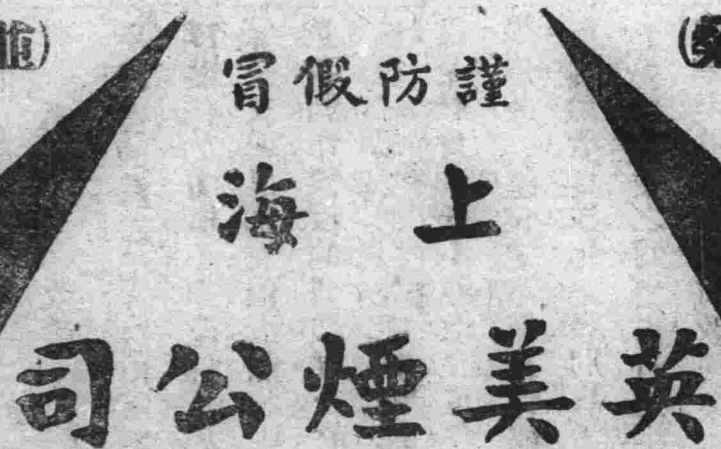 謹防假冒
上海
英美煙公司